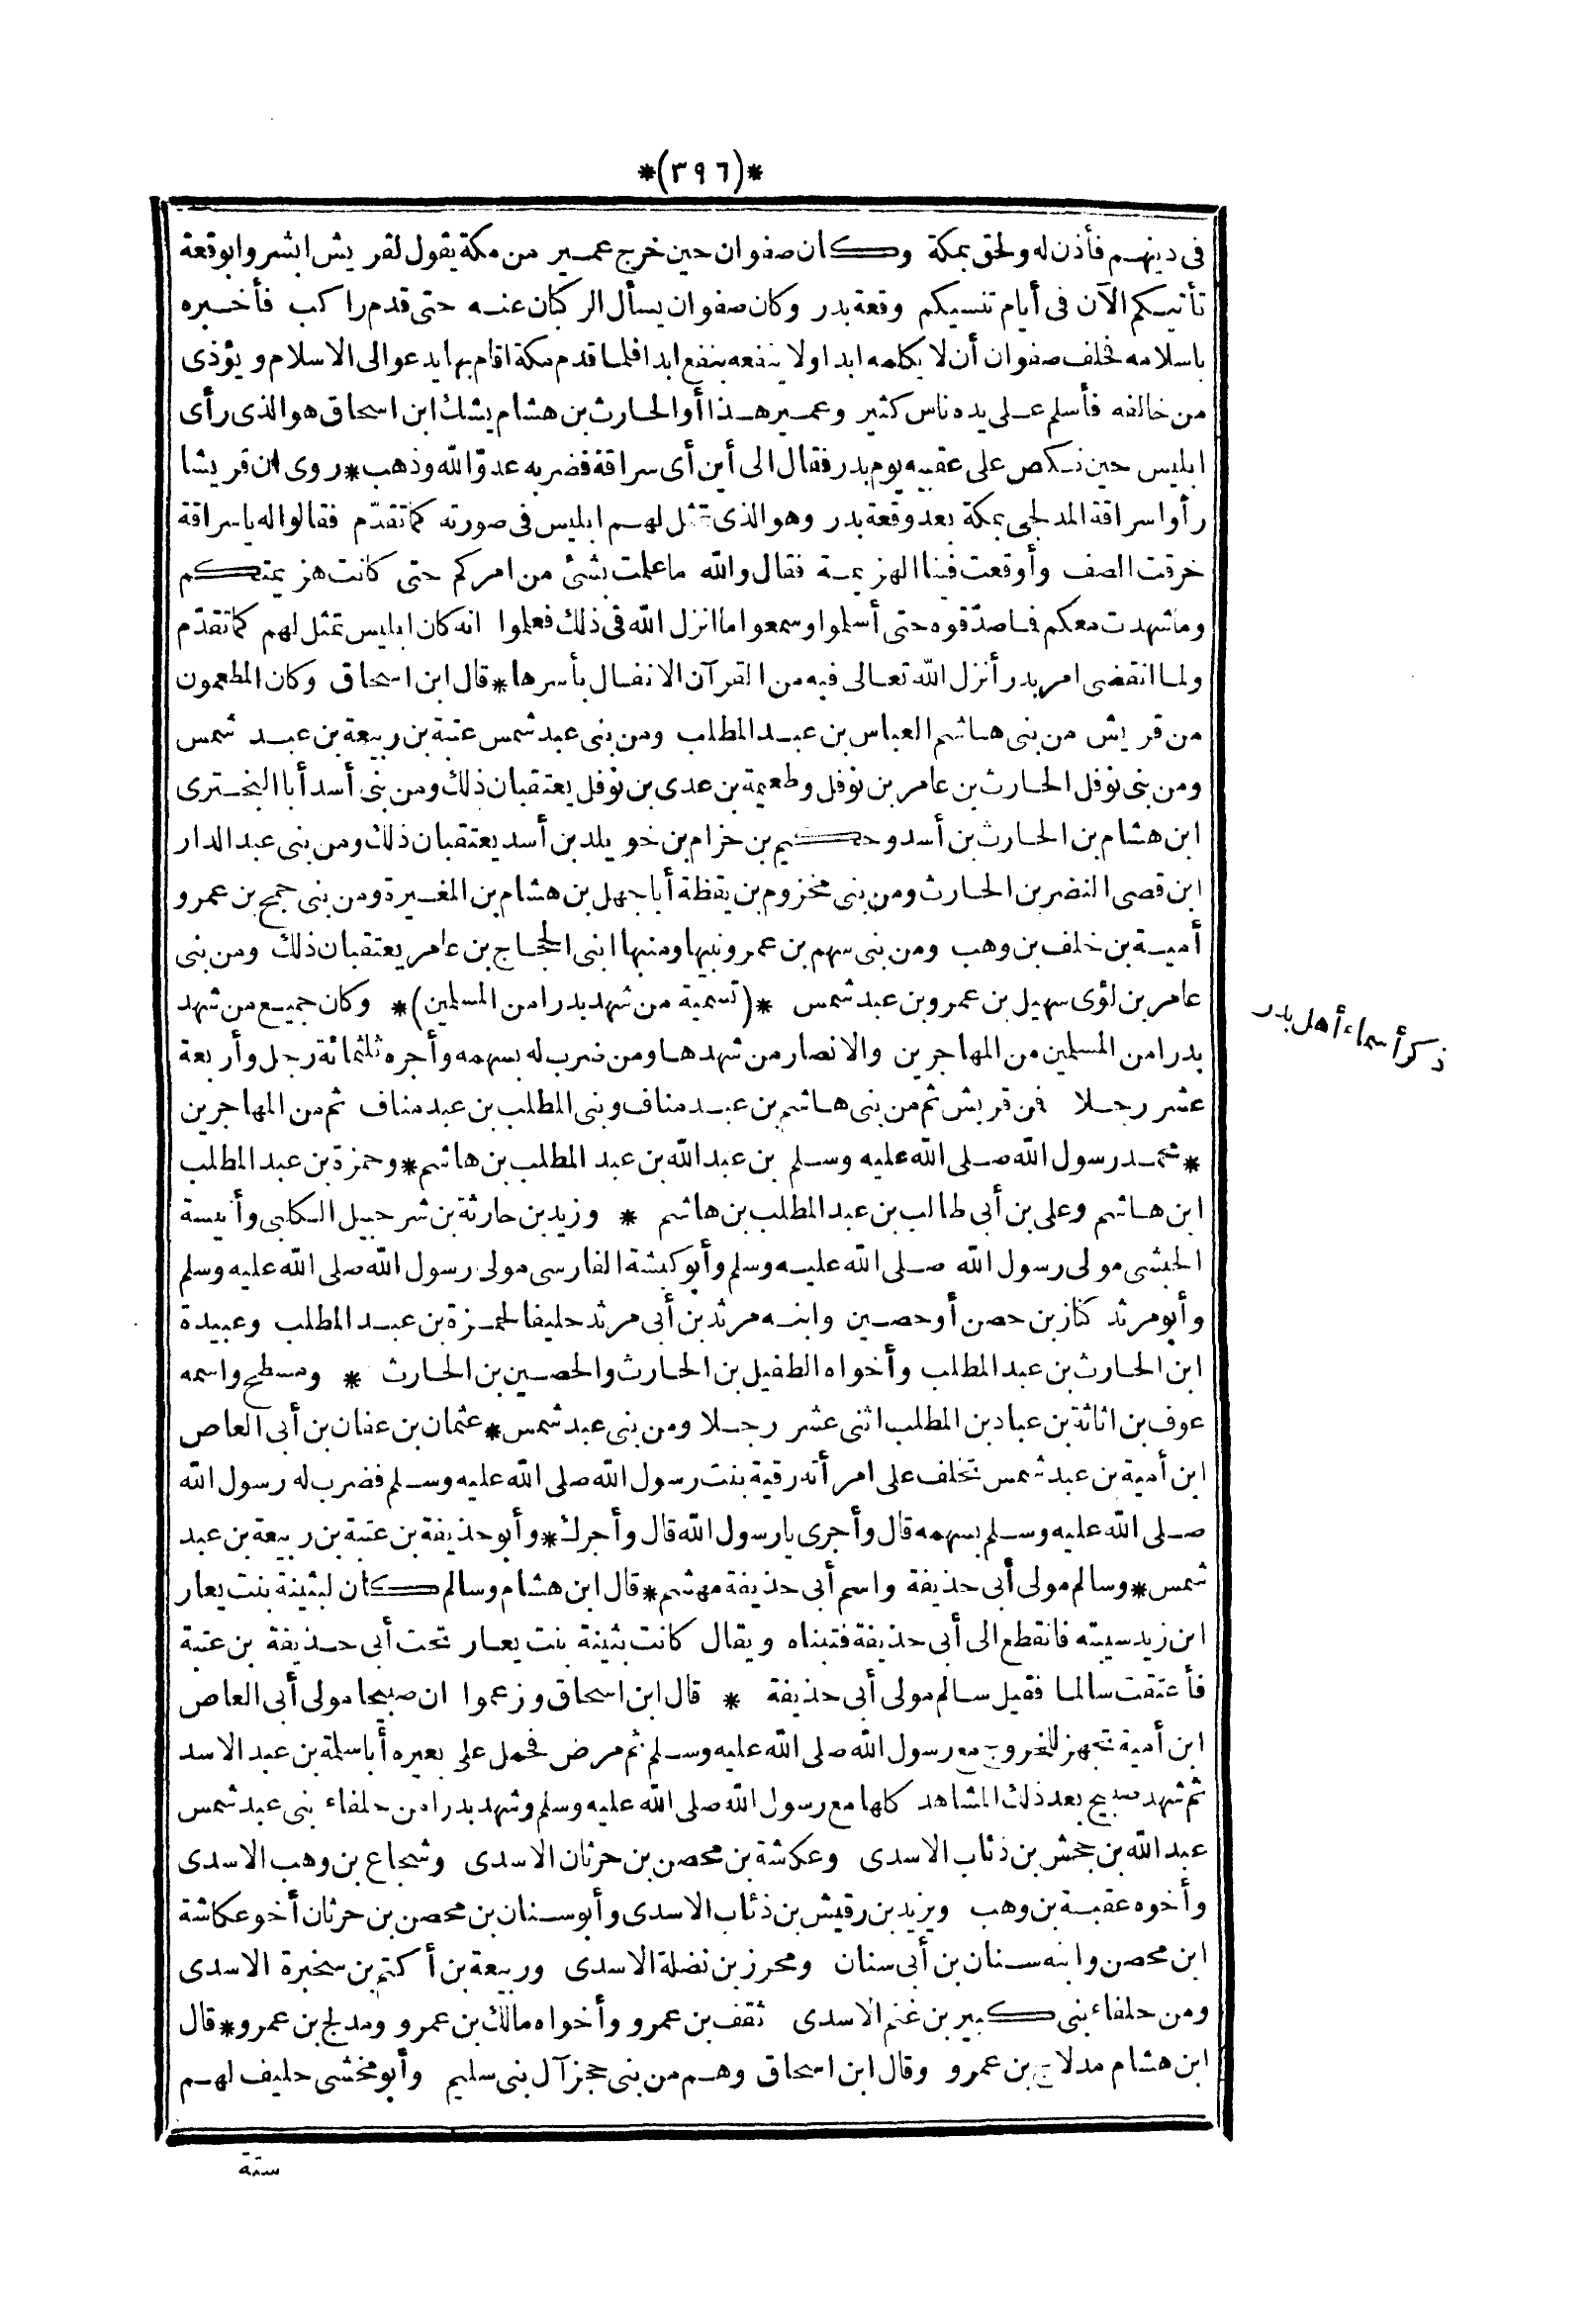 *(٣٩٦)*
فى دينهم فأذن له ولحق بمكة وكان صفوان حين خرج عمير من مكة يقول لقريش ابشروا بوقعة
تأتيكم الآن فى أيام تنسيكم وقعة بدر وكان صفوان يسأل الركبان عنه حتى قدم راكب فأخبره
باسلامه فحلف صفوان أن لا يكلمه ابدا ولا ينفعه بنفع ابدا فلما قدم مكة اقام بها يدعو الى الاسلام ويؤذى
من خالفه فأسلم على يده ناس كثير وعمير هذا أو الحارث بن هشام يشك ابن اسحاق هو الذى رأى
ابليس حين نكص على عقبيه يوم بدر فقال الى أين أى سراقة فضربه عدوّ الله وذهب * روى ان قريشا
رأوا سراقة المدلجى بمكة بعد وقعة بدر وهو الذى تمثل لهم ابليس فى صورته كما تقدّم فقالوا له يا سراقة
خرقت الصف وأوقعت فينا الهزيمة فقال والله ما علمت بشئ من امركم حتى كانت هزيمتكم
وما شهدت معكم فما صدّقوه حتى أسلموا وسمعوا ما انزل الله فى ذلك فعلموا انه كان ابليس تمثل لهم كما تقدّم
ولما انقضى امر بدر أنزل الله تعالى فيه من القرآن الانفال بأسرها * قال ابن اسحاق وكان المطعمون
من قريش من بنى هاشم العباس بن عبد المطلب ومن بنى عبد شمس عتبة بن ربيعة بن عبد شمس
ومن بنى نوفل الحارث بن عامر بن نوفل وطعيمة بن عدى بن نوفل يعتقبان ذلك ومن بنى أسد أبا البخترى
ابن هشام بن الحارث بن أسد وحكيم بن حزام بن خويلد بن أسد يعتقبان ذلك ومن بنى عبد الدار
ابن قصى النضر بن الحارث ومن بنى مخزوم بن يقظة أبا جهل بن هشام بن المغيرة ومن بنى جمح بن عمرو
أمية بن خلف بن وهب ومن بنى سهم بن عمرو نبيها ومنبها ابنى الحجاج بن عامر يعتقبان ذلك ومن بنى
عامر بن لؤى سهيل بن عمرو بن عبد شمس *(تسمية من شهد بدرا من المسلمين)* وكان جميع من شهد
ذكر أسماء أهل بدر
بدرا من المسلمين من المهاجرين والانصار من شهدها ومن ضرب له بسهمه وأجره ثلثمائة رجل وأربعة
عشر رجلا فمن قريش ثم من بنى هاشم بن عبد مناف وبنى المطلب بن عبد مناف ثم من المهاجرين
* محمد رسول الله صلى الله عليه وسلم بن عبد الله بن عبد المطلب بن هاشم * وحمزة بن عبد المطلب
ابن هاشم وعلى بن أبى طالب بن عبد المطلب بن هاشم * وزيد بن حارثة بن شرحبيل الكلبى وأنيسة
الحبشى مولى رسول الله صلى الله عليه وسلم وأبو كبشة الفارسى مولى رسول الله صلى الله عليه وسلم
وأبو مرثد كناز بن حصن أو حصين وابنه مرثد بن أبى مرثد حليفا لحمزة بن عبد المطلب وعبيدة
ابن الحارث بن عبد المطلب وأخواه الطفيل بن الحارث والحصين بن الحارث * ومسطح واسمه
عوف بن اثاثة بن عباد بن المطلب اثنى عشر رجلا ومن بنى عبد شمس * عثمان بن عفان بن أبى العاص
ابن أمية بن عبد شمس تخلف على امرأته رقية بنت رسول الله صلى الله عليه وسلم فضرب له رسول الله
صلى الله عليه وسلم بسهمه قال وأجرى يا رسول الله قال وأجرك * وأبو حذيفة بن عتبة بن ربيعة بن عبد
شمس * وسالم مولى أبى حذيفة واسم أبى حذيفة مهشم * قال ابن هشام وسالم كان لبثينة بنت يعار
ابن زيد سيبته فانقطع الى أبى حذيفة فتبناه ويقال كانت بثينة بنت يعار تحت أبى حذيفة بن عتبة
فأعتقت سالما فقيل سالم مولى أبى حذيفة * قال ابن اسحاق وزعموا ان صبيحا مولى أبى العاص
ابن أمية تجهز للخروج مع رسول الله صلى الله عليه وسلم ثم مرض فحمل على بعيره أبا سلمة بن عبد الاسد
ثم شهد صبيح بعد ذلك المشاهد كلها مع رسول الله صلى الله عليه وسلم وشهد بدرا من حلفاء بنى عبد شمس
عبد الله بن جحش بن ذئاب الاسدى وعكاشة بن محصن بن حرثان الاسدى وشجاع بن وهب الاسدى
وأخوه عقبة بن وهب ويزيد بن رقيش بن ذئاب الاسدى وأبو سنان بن محصن بن حرثان أخو عكاشة
ابن محصن وابنه سنان بن أبى سنان ومحرز بن نضلة الاسدى وربيعة بن أكتم بن سخبرة الاسدى
ومن حلفاء بنى كبير بن غنم الاسدى ثقف بن عمرو وأخواه مالك بن عمرو ومدلج بن عمرو * قال
ابن هشام مدلاج بن عمرو وقال ابن اسحاق وهم من بنى حجز آل بنى سليم وأبو مخشى حليف لهم
ستة